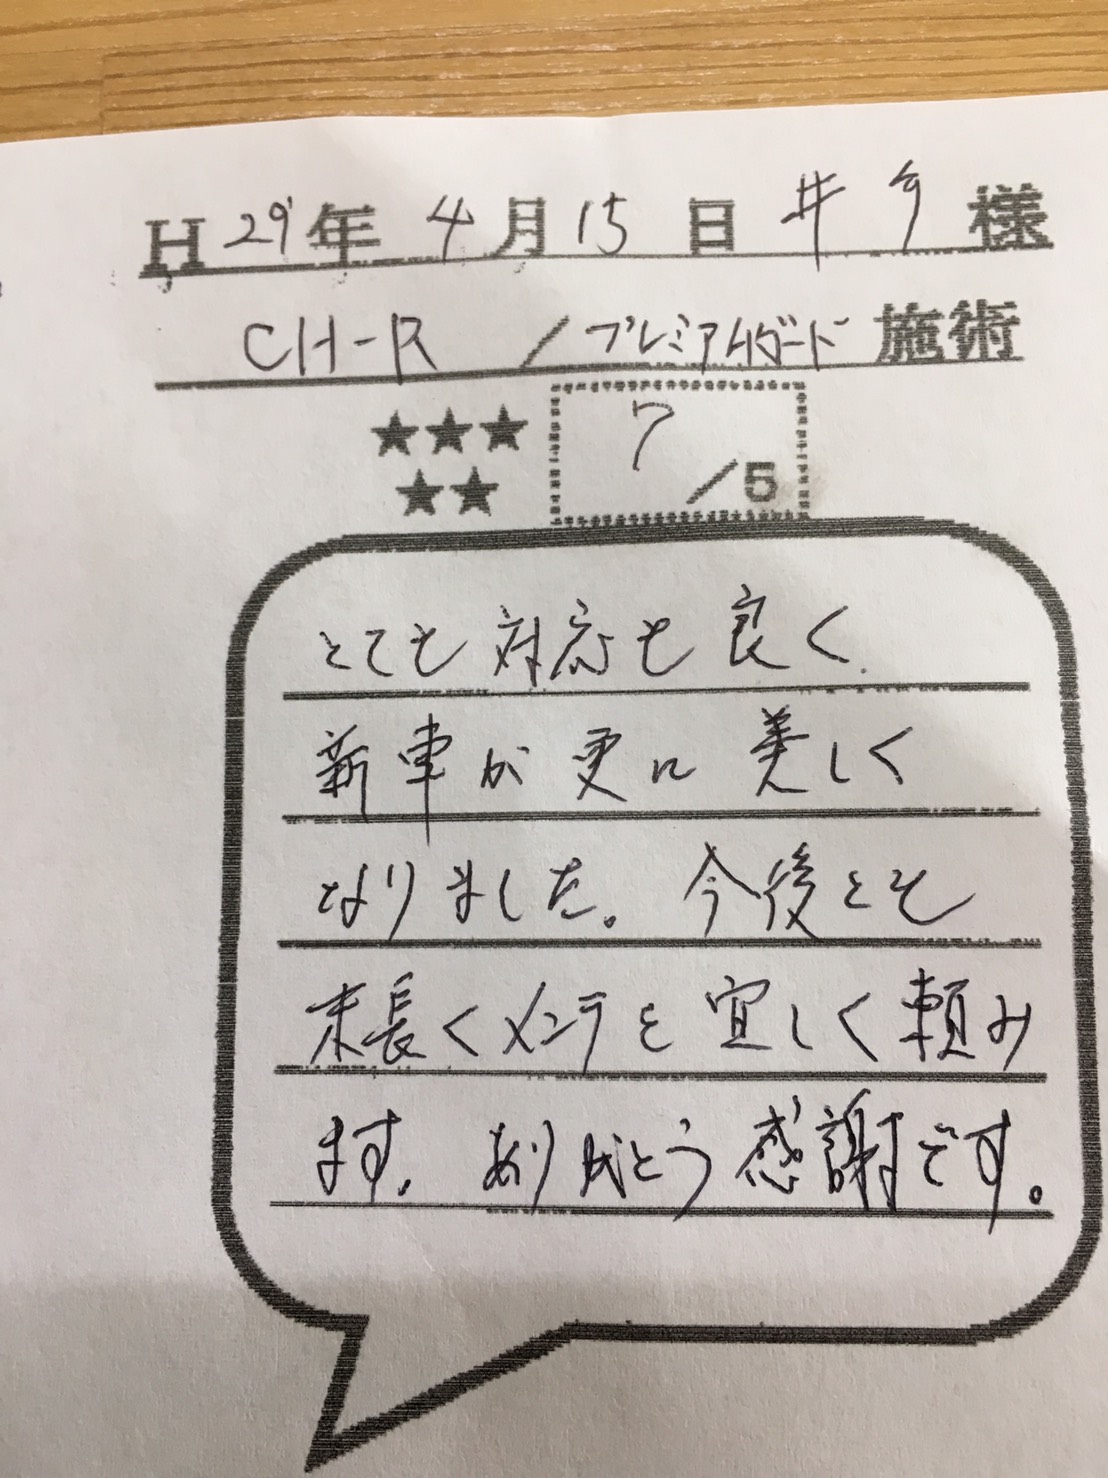 H29年4月15日 井 様
CH-R /プレミアムガード 施術
★★★
★★
7/5
とても対応も良く
新車が更に美しく
なりました。今後とも
末長くメンテを宜しく頼み
ます。ありがとう感謝です。